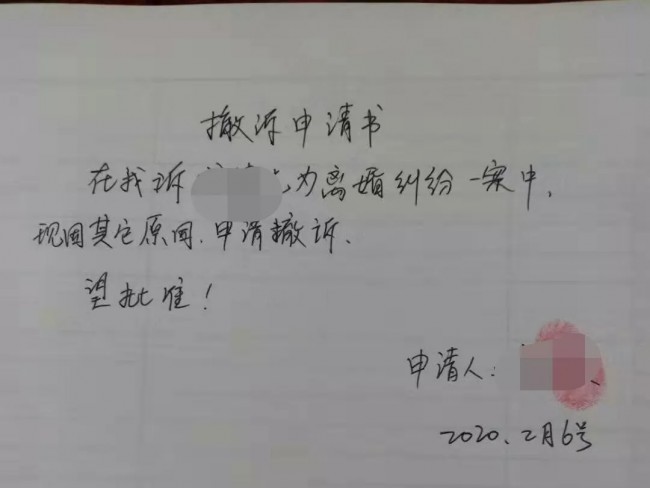 撤诉申请书
在我诉为离婚纠纷一案中,
现因其它原因、申请撤诉、
望批准!
申请人:
2020、2月6号